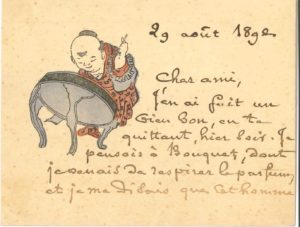 29 août 1892
Cher ami,
J'en ai fait un
bien bon, en te
quittant, hier soir. Je
pensais à Bouquet, dont
je venais de respirer le parfum,
et je me disais que cet homme